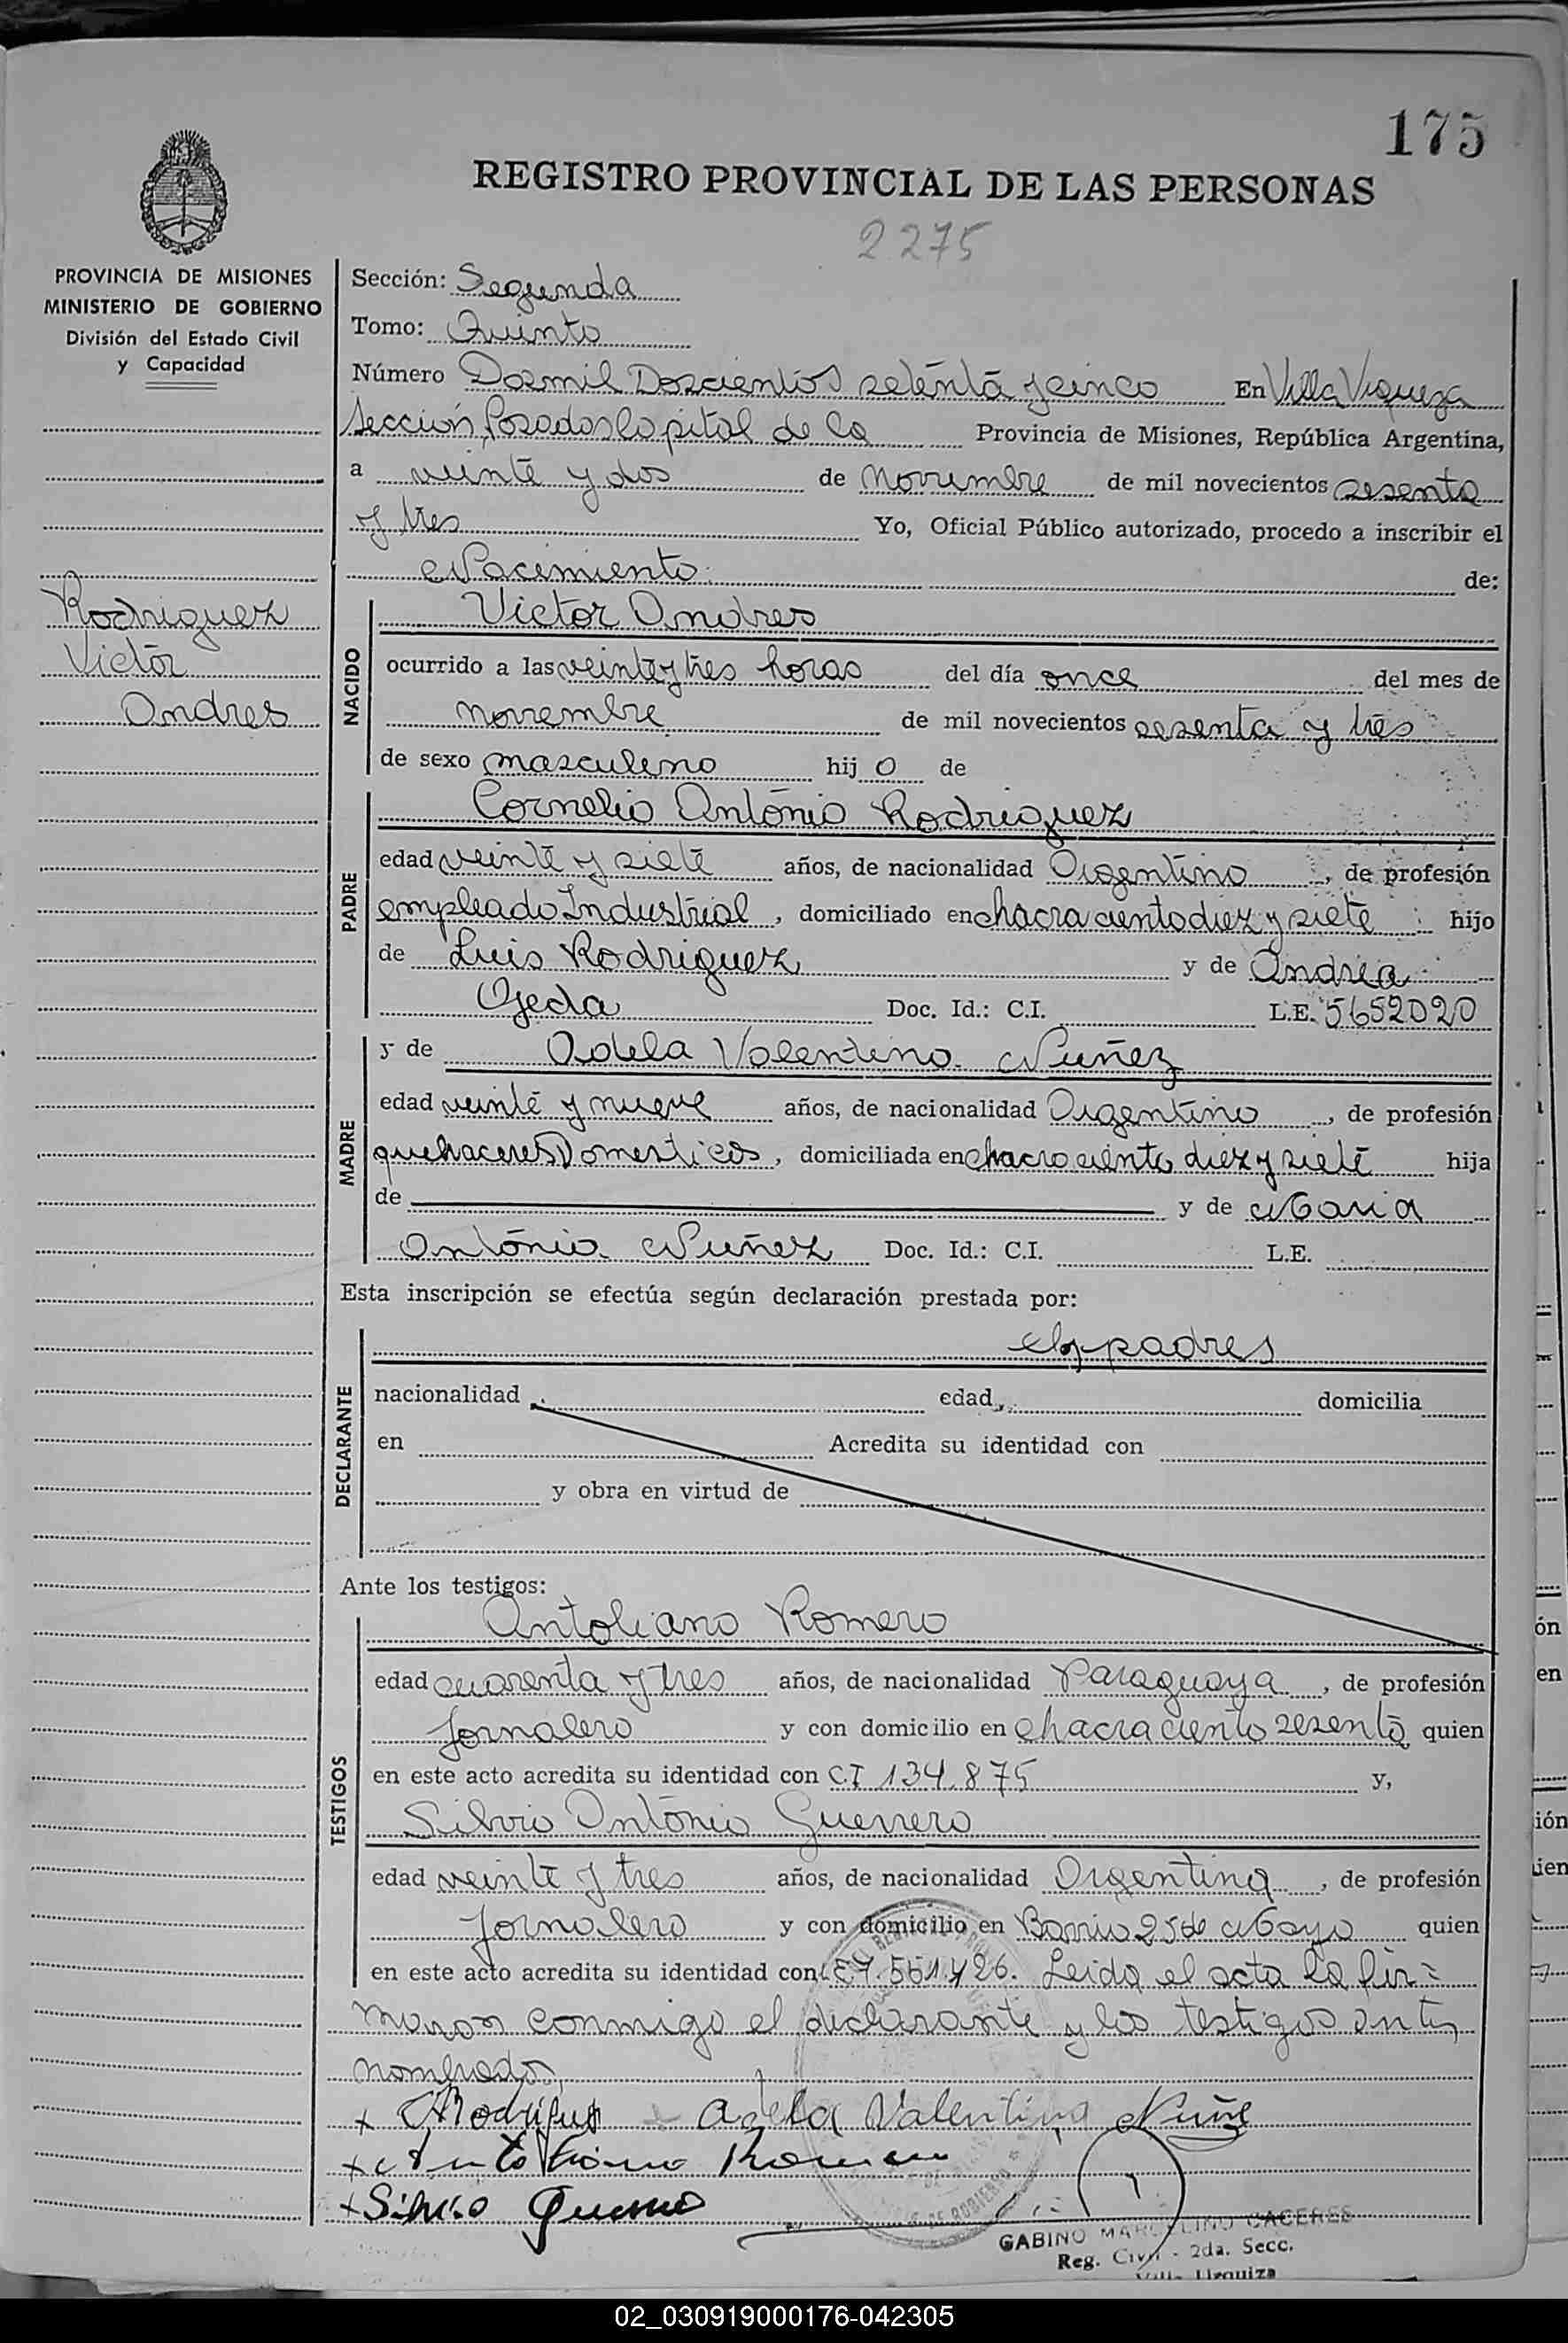 175
REGISTRO PROVINCIAL DE LAS PERSONAS
2275
PROVINCIA DE MISIONES
MINISTERIO DE GOBIERNO
División del Estado Civil
y Capacidad
Rodriguez
Victor
Andres
Sección: Segunda
Tomo: Quinto
Número Dosmil Doscientos setenta y cinco En Villa Urquiza
Sección, Posadas Capital de la Provincia de Misiones, República Argentina,
a veinte y dos de noviembre de mil novecientos sesenta
y tres Yo, Oficial Público autorizado, procedo a inscribir el
Nacimiento de:
NACIDO
Victor Andres
ocurrido a las veinte y tres horas del día once del mes de
noviembre de mil novecientos sesenta y tres
de sexo masculino hij o de
PADRE
Cornelio Antonio Rodriguez
edad veinte y siete años, de nacionalidad Argentino, de profesión
empleado Industrial, domiciliado en chacra ciento diez y siete hijo
de Luis Rodriguez y de Andrea
Ojeda Doc. Id.: C.I. L.E. 5652020
MADRE
y de Adela Valentina Nuñez
edad veinte y nueve años, de nacionalidad Argentina, de profesión
quehaceres Domesticos, domiciliada en chacra ciento diez y siete hija
de y de Maria
Antonia Nuñez Doc. Id.: C.I. L.E.
Esta inscripción se efectúa según declaración prestada por:
DECLARANTE
padres
nacionalidad edad, domicilia
en Acredita su identidad con
y obra en virtud de
Ante los testigos:
TESTIGOS
Antoliano Romero
edad cuarenta y tres años, de nacionalidad Paraguaya, de profesión
Jornalero y con domicilio en chacra ciento sesenta quien
en este acto acredita su identidad con C.I 134.875 y,
Silvio Antonio Guerrero
edad veinte y tres años, de nacionalidad Argentina, de profesión
Jornalero y con domicilio en Barrio 25 de Mayo quien
en este acto acredita su identidad con Leida el acta la fir=
maron conmigo el declarante y los testigos antes
nombrados,
+ CARodriguez + Adela Valentina Nuñe
+ Antoliano Romero
+ Silvio Guerrero
GABINO MARCELINO CACERES
Reg. Civil - 2da. Secc.
Villa Urquiza
02_030919000176-042305